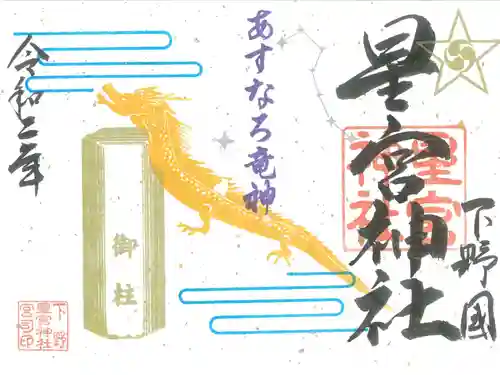 下野國
星宮神社
星宮神社
あすなろ竜神
御柱
令和二年
下野
星宮神社
宮司印